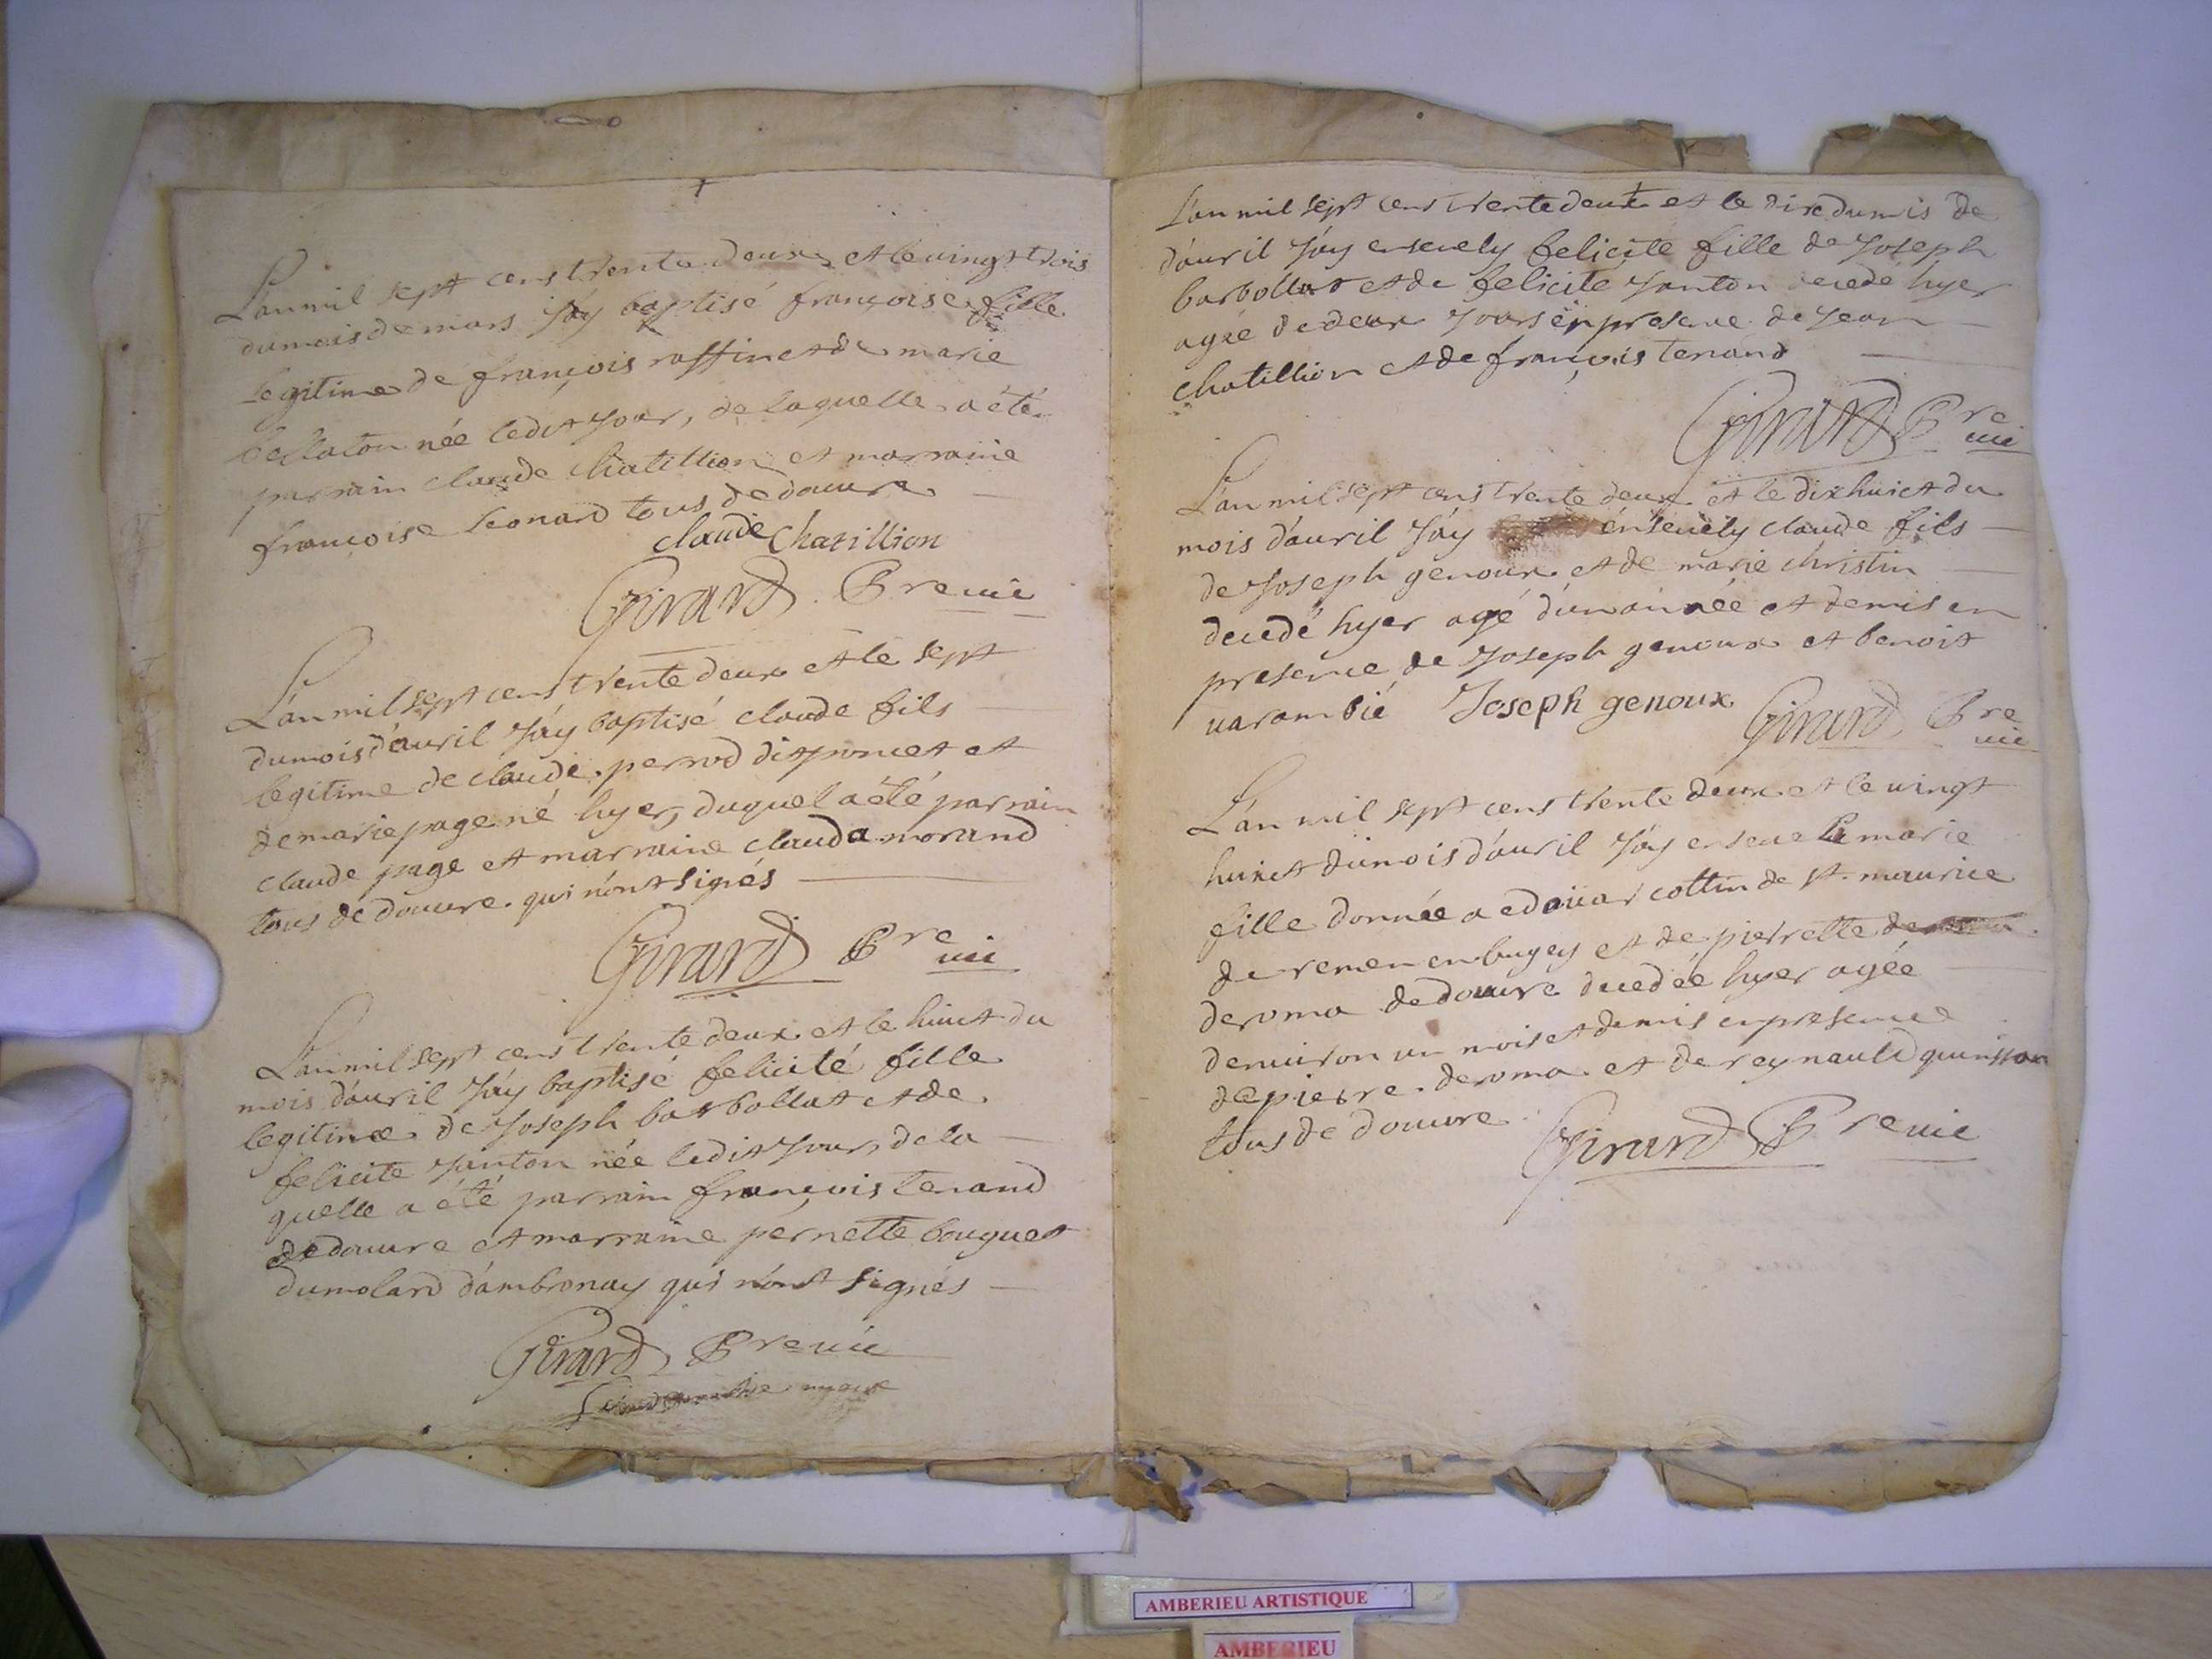 L'an mil sept cens trente deux et le vingt trois
du mois de mars J'ay baptisé françoise fille
legitime de françois raffin et de marie
née ledit Jour, de laquelle a été
parrain claude Chatillion et marraine
françoise leonard tous de douvre
claude Chatillion
Girard Pre vic
L'an mil sept cens trente deux et le sept
du mois d'avril J'ay baptisé claude fils
legitime de claude perrod dit poncet et
de marie page né hyer, duquel a été parrain
claude page et marraine clauda morand
tous de douvre qui n'ont signés
Girard Pre vic
L'an mil sept cens trente deux et le huict du
mois d'avril J'ay baptisé felicité fille
legitime de Joseph barbollat et de
felicité Janton née ledit Jour, de la
quelle a été parrain françois tenand
de douvre et marraine pernette bouguet
du molard d'ambronay qui n'ont signés
Girard Pre vic
L'an mil sept cens trente deux et le dix du mis de
d'avril J'ay ensevely felicité fille de Joseph
barbollat et de felicité Janton decedé hyer
agée de deux Jours en presence de Jean
chatillion et de françois tenand
Girard Pre vic
L'an mil sept cens trente deux et le dix huict du
mois d'avril J'ay ensevely claude fils
de Joseph genoux et de marie christin
decedé hyer agé d'un année et demis en
presence de Joseph genoux et benoit
varambié Joseph genoux Girard Pre vic
L'an mil sept cens trente deux et le vingt
huict du mois d'avril J'ay enseveli marie
fille donnée a edoüar cottin de st. maurice
de remen en bugey et de pierrette
deroma de douvre decedée hyer agée
denviron un mois et demis en presence
de pierre deroma et de reynauld quinsson
tous de douvre Girard Pre vic
AMBERIEU ARTISTIQUE
AMBERIEU